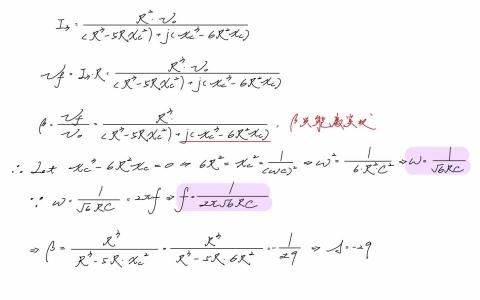 I₃ = R²·v₀ / ((R³-5RXc²)+j(Xc³-6R²Xc))
vf = I₃·R = R³·v₀ / ((R³-5RXc²)+j(Xc³-6R²Xc))
β = vf/v₀ = R³ / ((R³-5RXc²)+j(Xc³-6R²Xc)) , β只能為實數
∴ Let Xc³-6R²Xc=0 ⇒ 6R²=Xc²=1/(ωC)² ⇒ ω²=1/(6·R²C²) ⇒ ω=1/(√6RC)
∵ ω=1/(√6RC)=2πf ⇒ f=1/(2π√6RC)
⇒ β = R³/(R³-5R·Xc²) = R³/(R³-5R·6R²) = -1/29 ⇒ A=-29